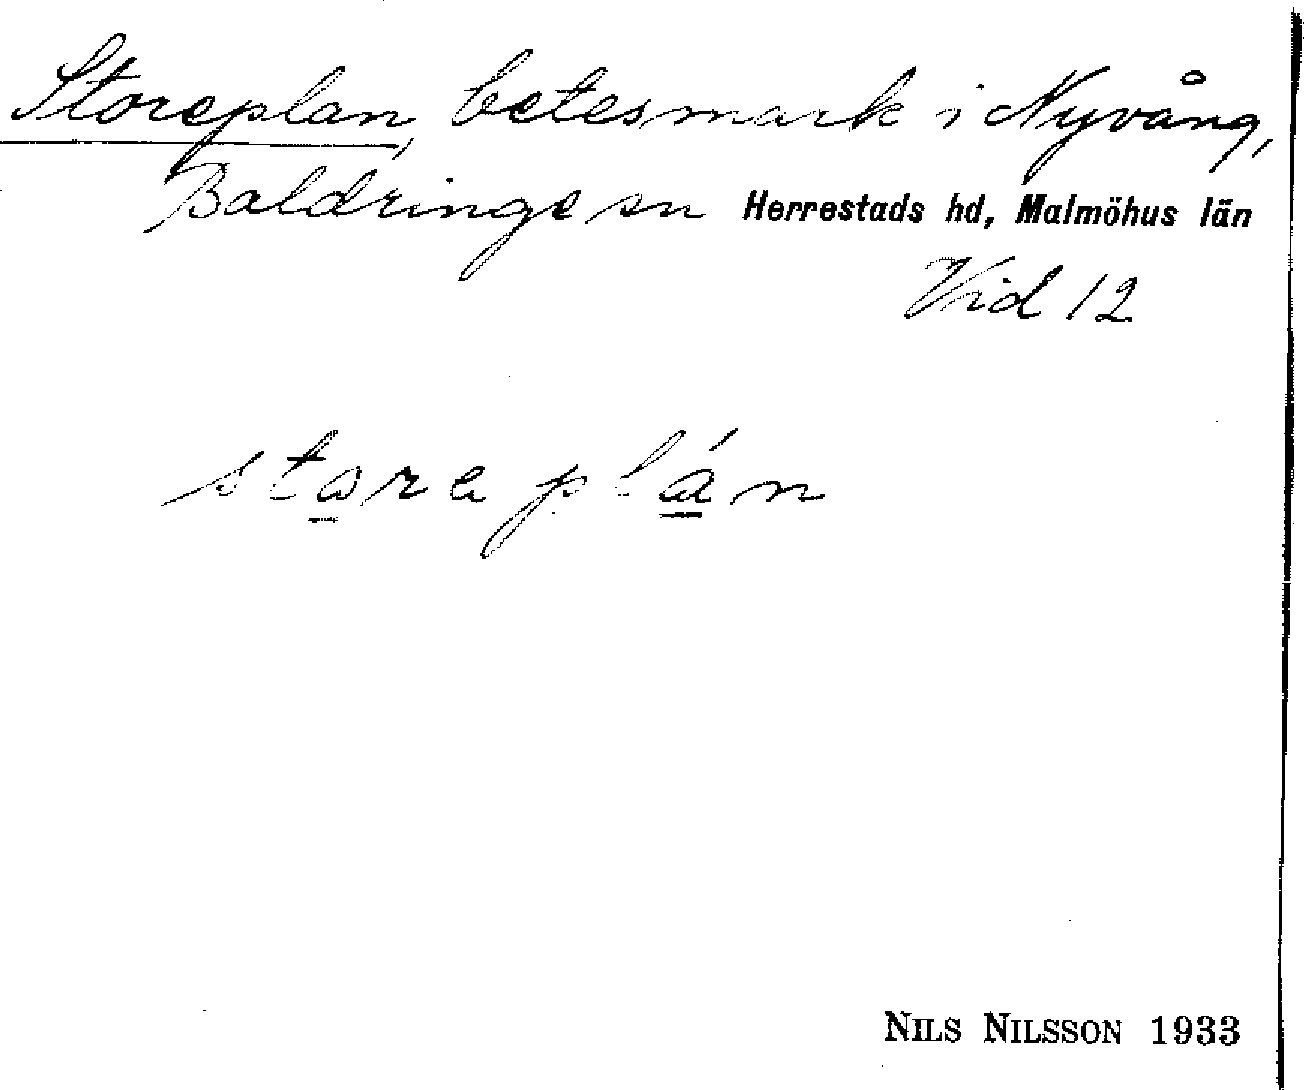 Storeplan, betesmark i Nyvång,
Baldringe sn Herrestads hd, Malmöhus län
Vid 12
storeplán
NILS NILSSON 1933